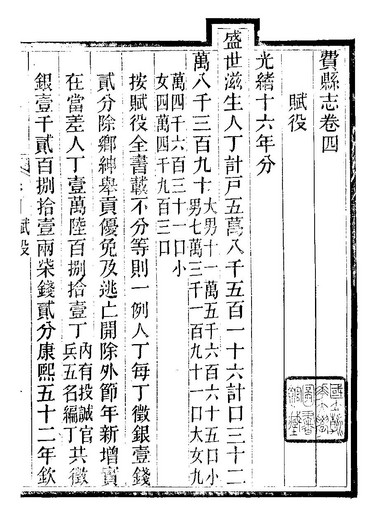 費縣志卷四
賦役
光緒十六年分
盛世滋生人丁計戸五萬八千五百一十六計口三十二
萬八千三百九十
大男十一萬五千六百六十五口小
男七萬三千一百九十一口大女九
萬四千六百三十一口小
女四萬四千九百三口
按賦役全書載不分等則一例人丁每丁徵銀壹錢
貳分除鄉紳舉貢優免及逃亡開除外節年新增實
在當差人丁壹萬陸百捌拾壹丁
內有投誠官
兵五名編丁
共徵
銀壹千貳百捌拾壹兩柒錢貳分康熙五十二年欽
賦役